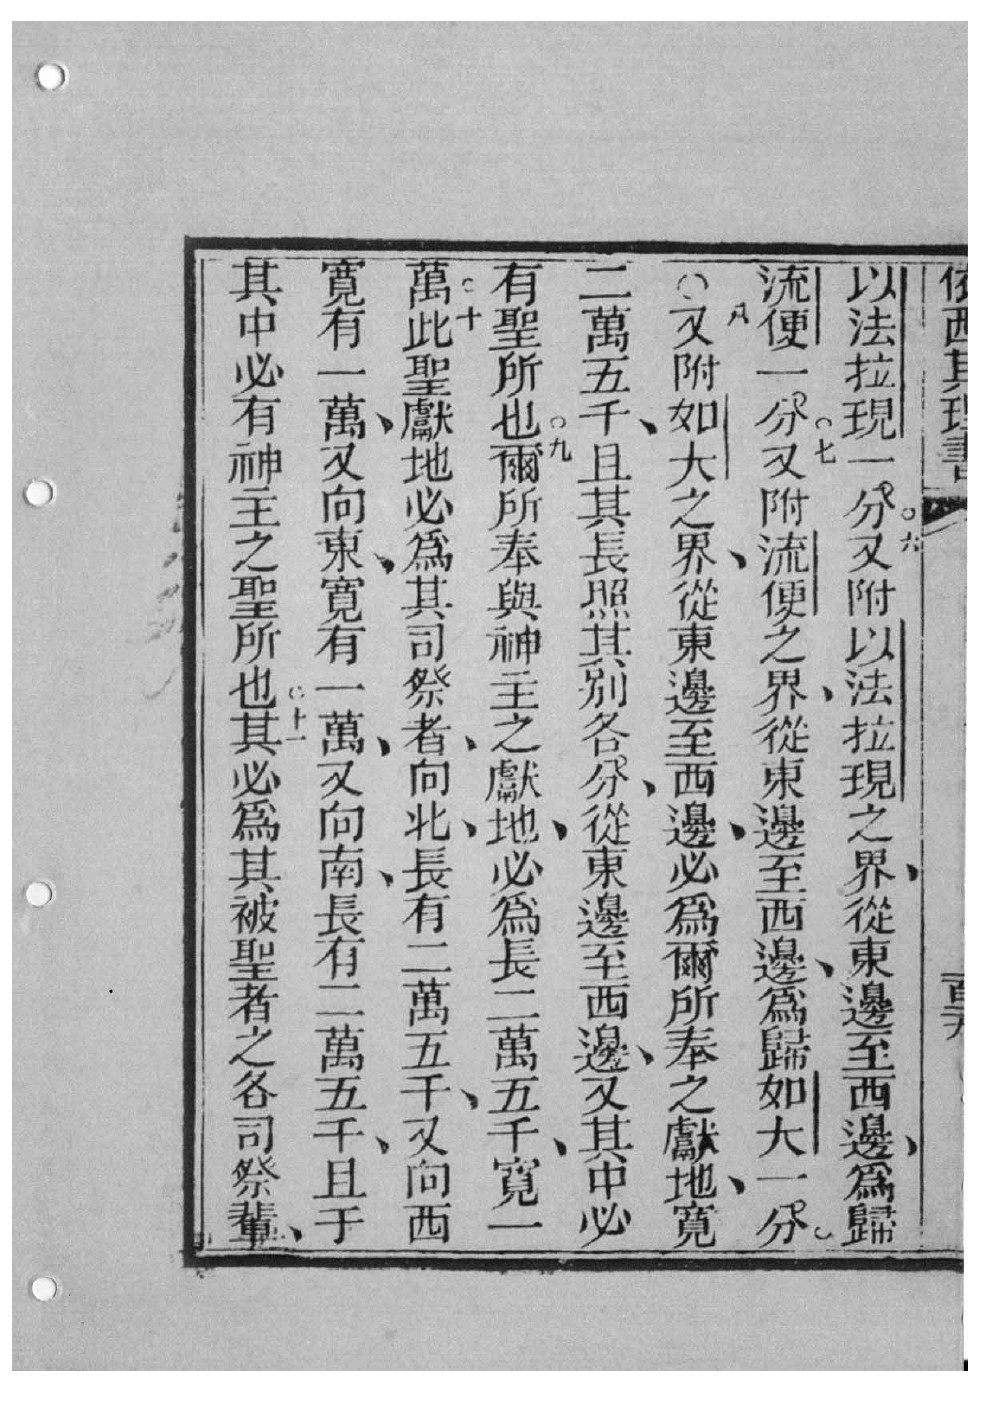 依西其理書 百九
以法拉現一分○六又附以法拉現之界、從東邊至西邊、為歸
流便一分○七又附流便之界、從東邊至西邊、為歸如大一分
○八又附如大之界、從東邊至西邊、必為爾所奉之獻地、寬
二萬五千、且其長照其別各分、從東邊至西邊、又其中必
有聖所也○九爾所奉與神主之獻地、必為長二萬五千、寬一
萬○十此聖獻地必為其司祭者、向北、長有二萬五千、又向西
寬有一萬、又向東、寬有一萬、又向南、長有二萬五千、且于
其中必有神主之聖所也○十一其必為其被聖者之各司祭輩、